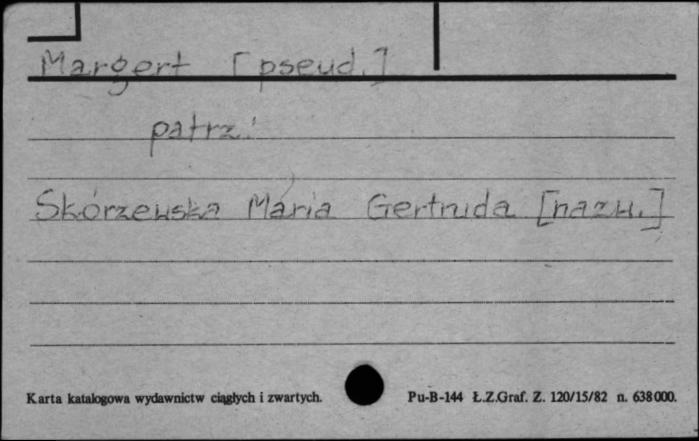 Margert [pseud.]
patrz:
Skórzewska Maria Gertruda [nazw.]
Karta katalogowa wydawnictw ciągłych i zwartych. Pu-B-144 Ł.Z.Graf. Z. 120/15/82 n. 638000.